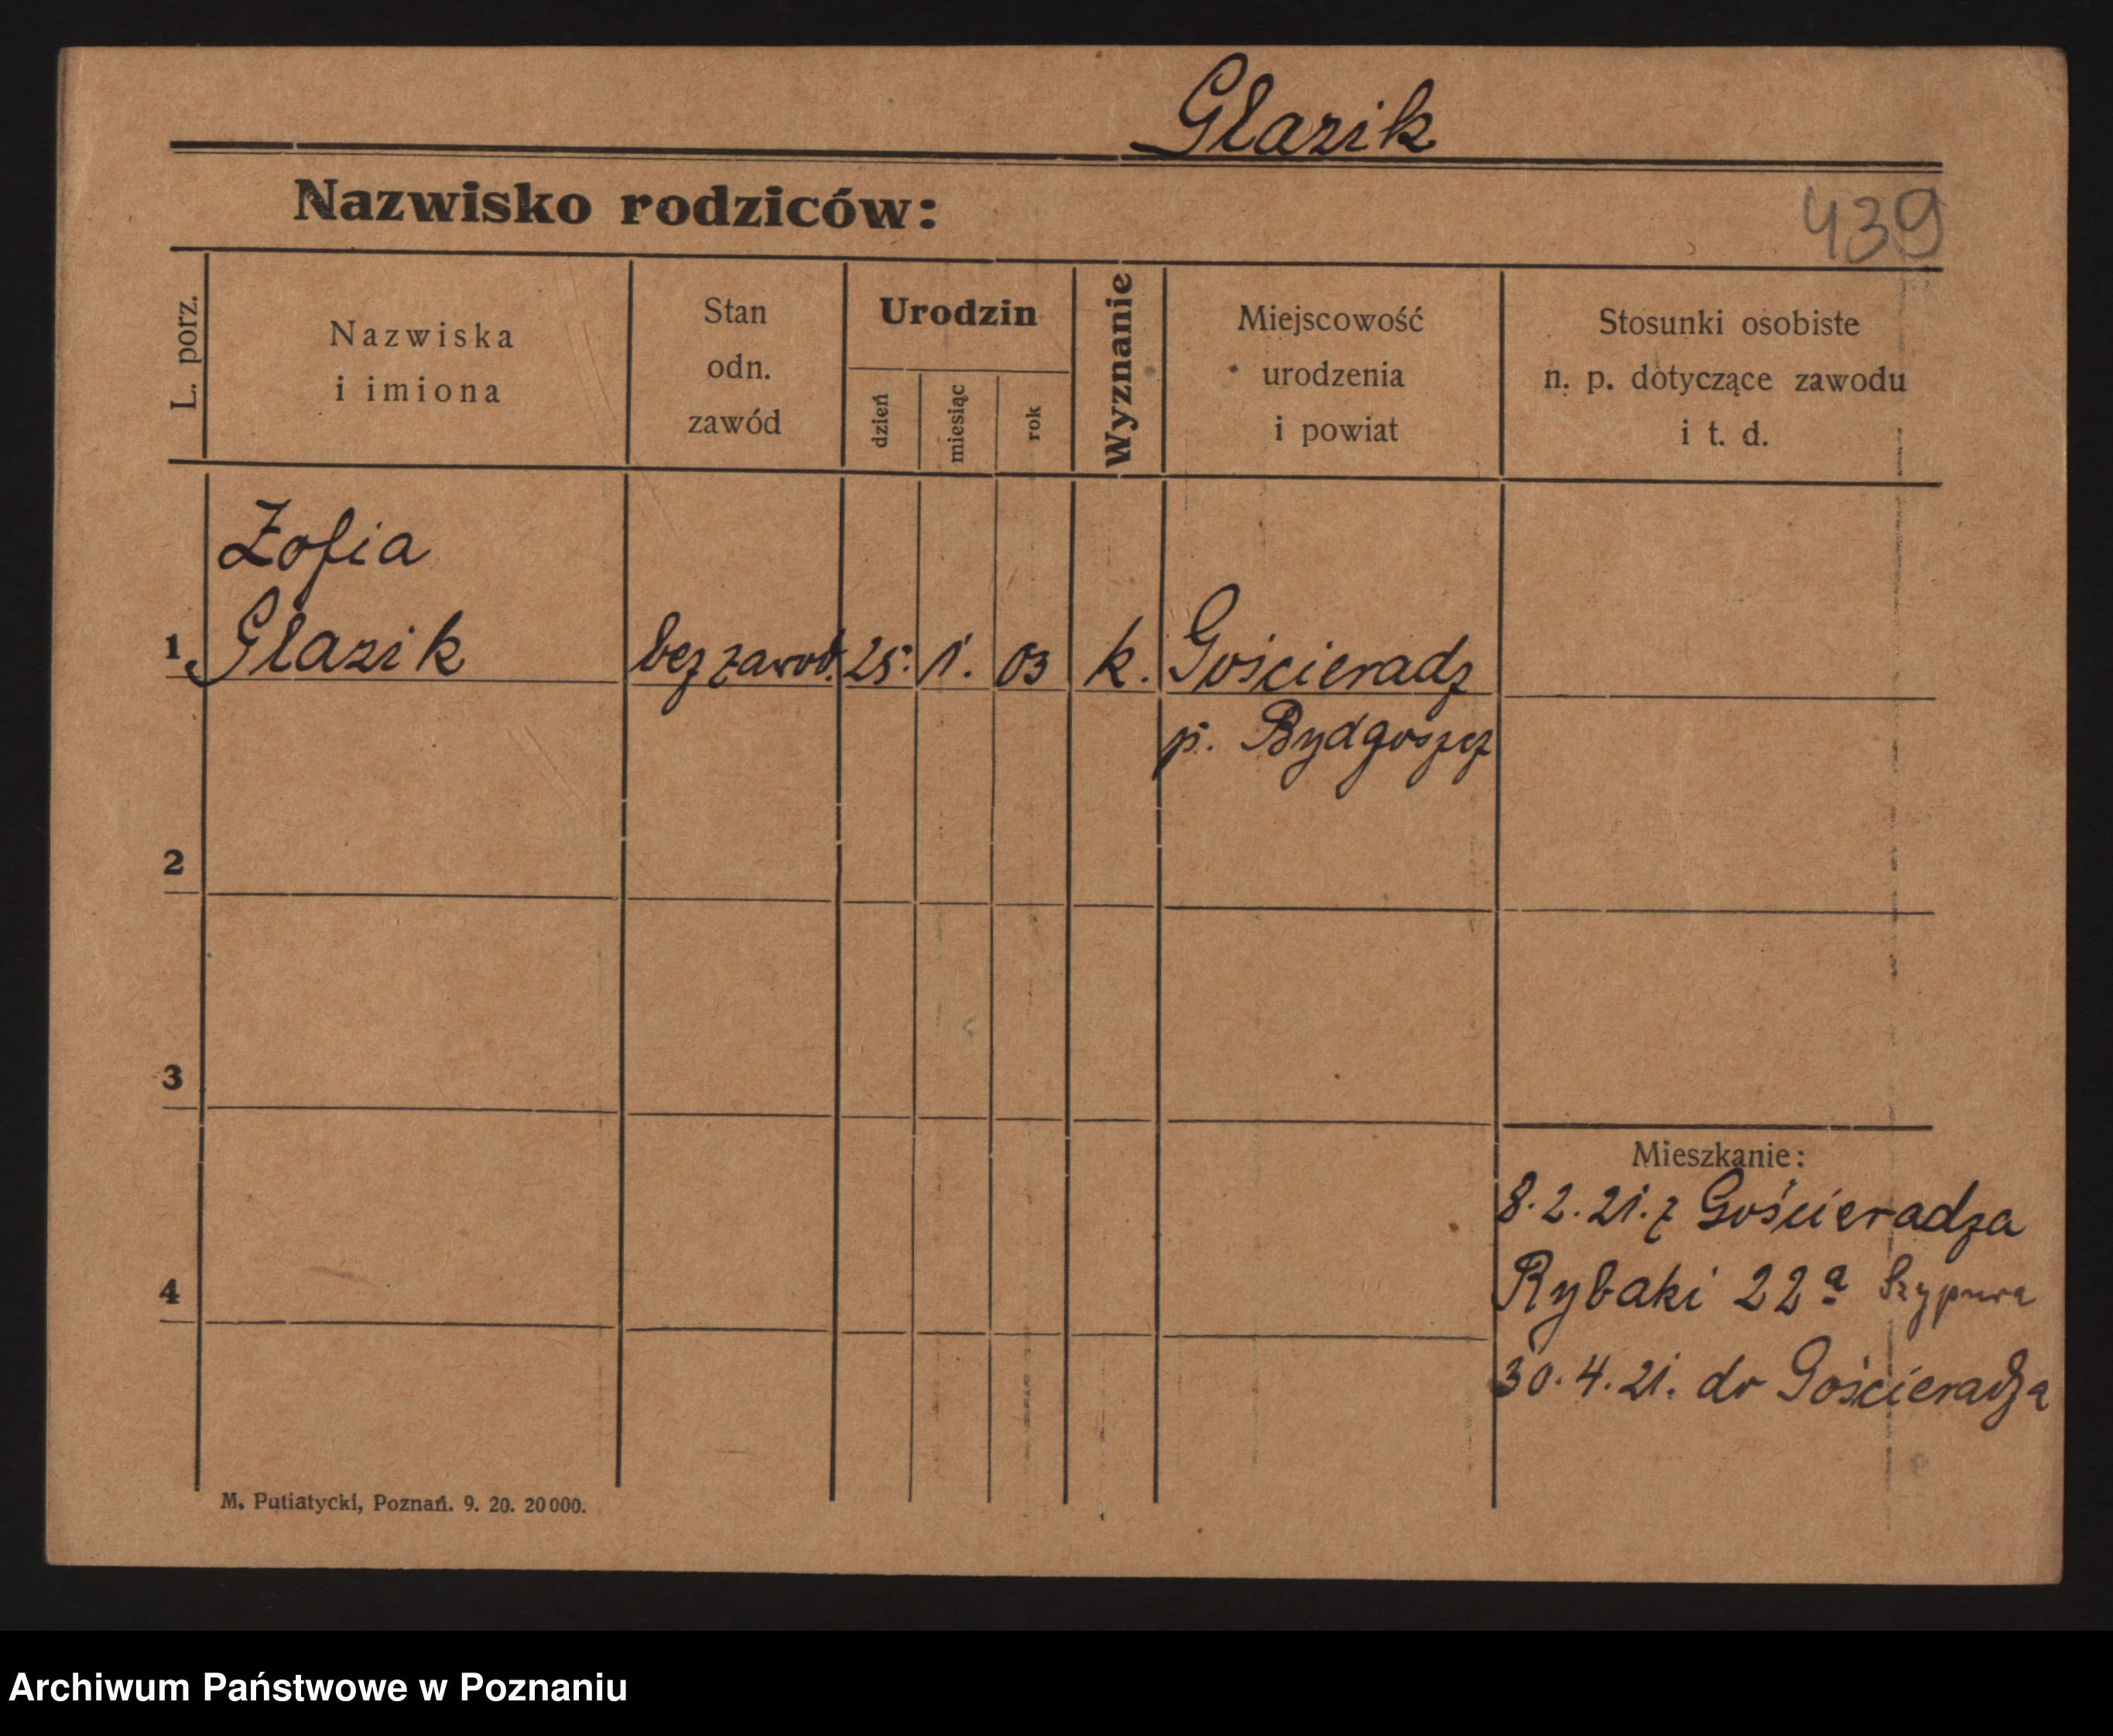 Glazik
Nazwisko rodziców:
439
L. porz.
Nazwiska
i imiona
Stan
odn.
zawód
Urodzin
dzień
miesiąc
rok
Wyznanie
Miejscowość
urodzenia
i powiat
Stosunki osobiste
n. p. dotyczące zawodu
i t. d.
Zofia
1 Glazik bez zawod. 25. 1. 03 k. Gościeradz
p. Bydgoszcz
2
3
Mieszkanie:
8. 2. 21. z Gościeradza
4 Rybaki 22a
30. 4. 21. do Gościeradza
M. Putiatycki, Poznań. 9. 20. 20000.
Archiwum Państwowe w Poznaniu